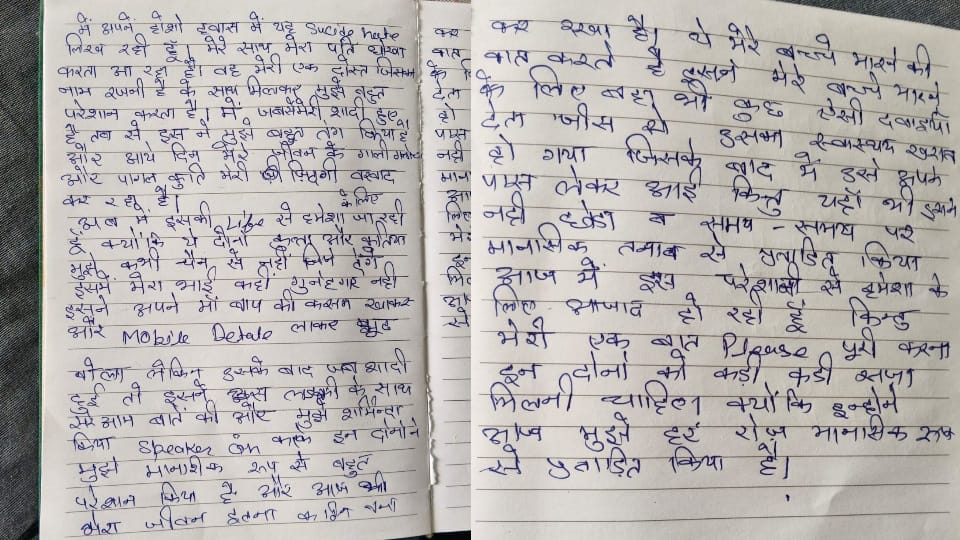 में अपने होशो हवास में यह Sucide note
लिख रही हूँ। मेरे साथ मेरा पति धोखा
करता आ रहा है। वह मेरी एक दोस्त जिसका
नाम रजनी है के साथ मिलकर मुझे बहुत
परेशान करता है। में जबसे मेरी शादी हुई
है तब से इस ने मुझे बहुत तंग किया है
और आये दिन मेरे जीवन के गाली गलोच
और पागल कुति मेरी जिन्दगी बरबाद
कर रहा है।
अब में इसकी Life से हमेशा के लिए जा रही
हूँ क्योंकि ये दोनो कुत्ता और कुतिया
मुझे कभी चैन से नहीं जिने देंगे
इसमें मेरा भाई कहीं गुनेहगार नही
इसने अपने माँ बाप की कसम खाकर
और Mobile Detale लाकर झूठ
बोला लेकिन उसके बाद जब शादी
हुई तो इसने उस लड़की के साथ
सरेआम बातें की और मुझे शर्मिन्दा
किया Speaker on करके इन दोनो ने
मुझे मानाशिक रूप से बहुत
परेशान किया है और आज भी
मेरा जीवन इतना कठिन बना
कर रखा है। ये मेरे बच्चे मारने की
बात करते है इसने मेरे बच्चे मारने
के लिए बहुत भी कुछ ऐसी दवाईया
देता जीस से उसका स्वास्थय खराब
हो गया जिसके बाद में उसे अपके
पास लेकर आई किन्तु यहाँ भी इसने
नही छोडा व समय - समय पर
मानासिक तनाव से प्रताडित किया
आज में इस परेशानी से हमेशा के
लिए आजाद हो रही हूँ किन्तु
मेरी एक बात Please पूरी करना
इन दोनो को कड़ी कडी सजा
मिलनी चाहिए क्योंकि इन्होने
आज मुझे हर रोज मानासिक रूप
से प्रताडित किया है।